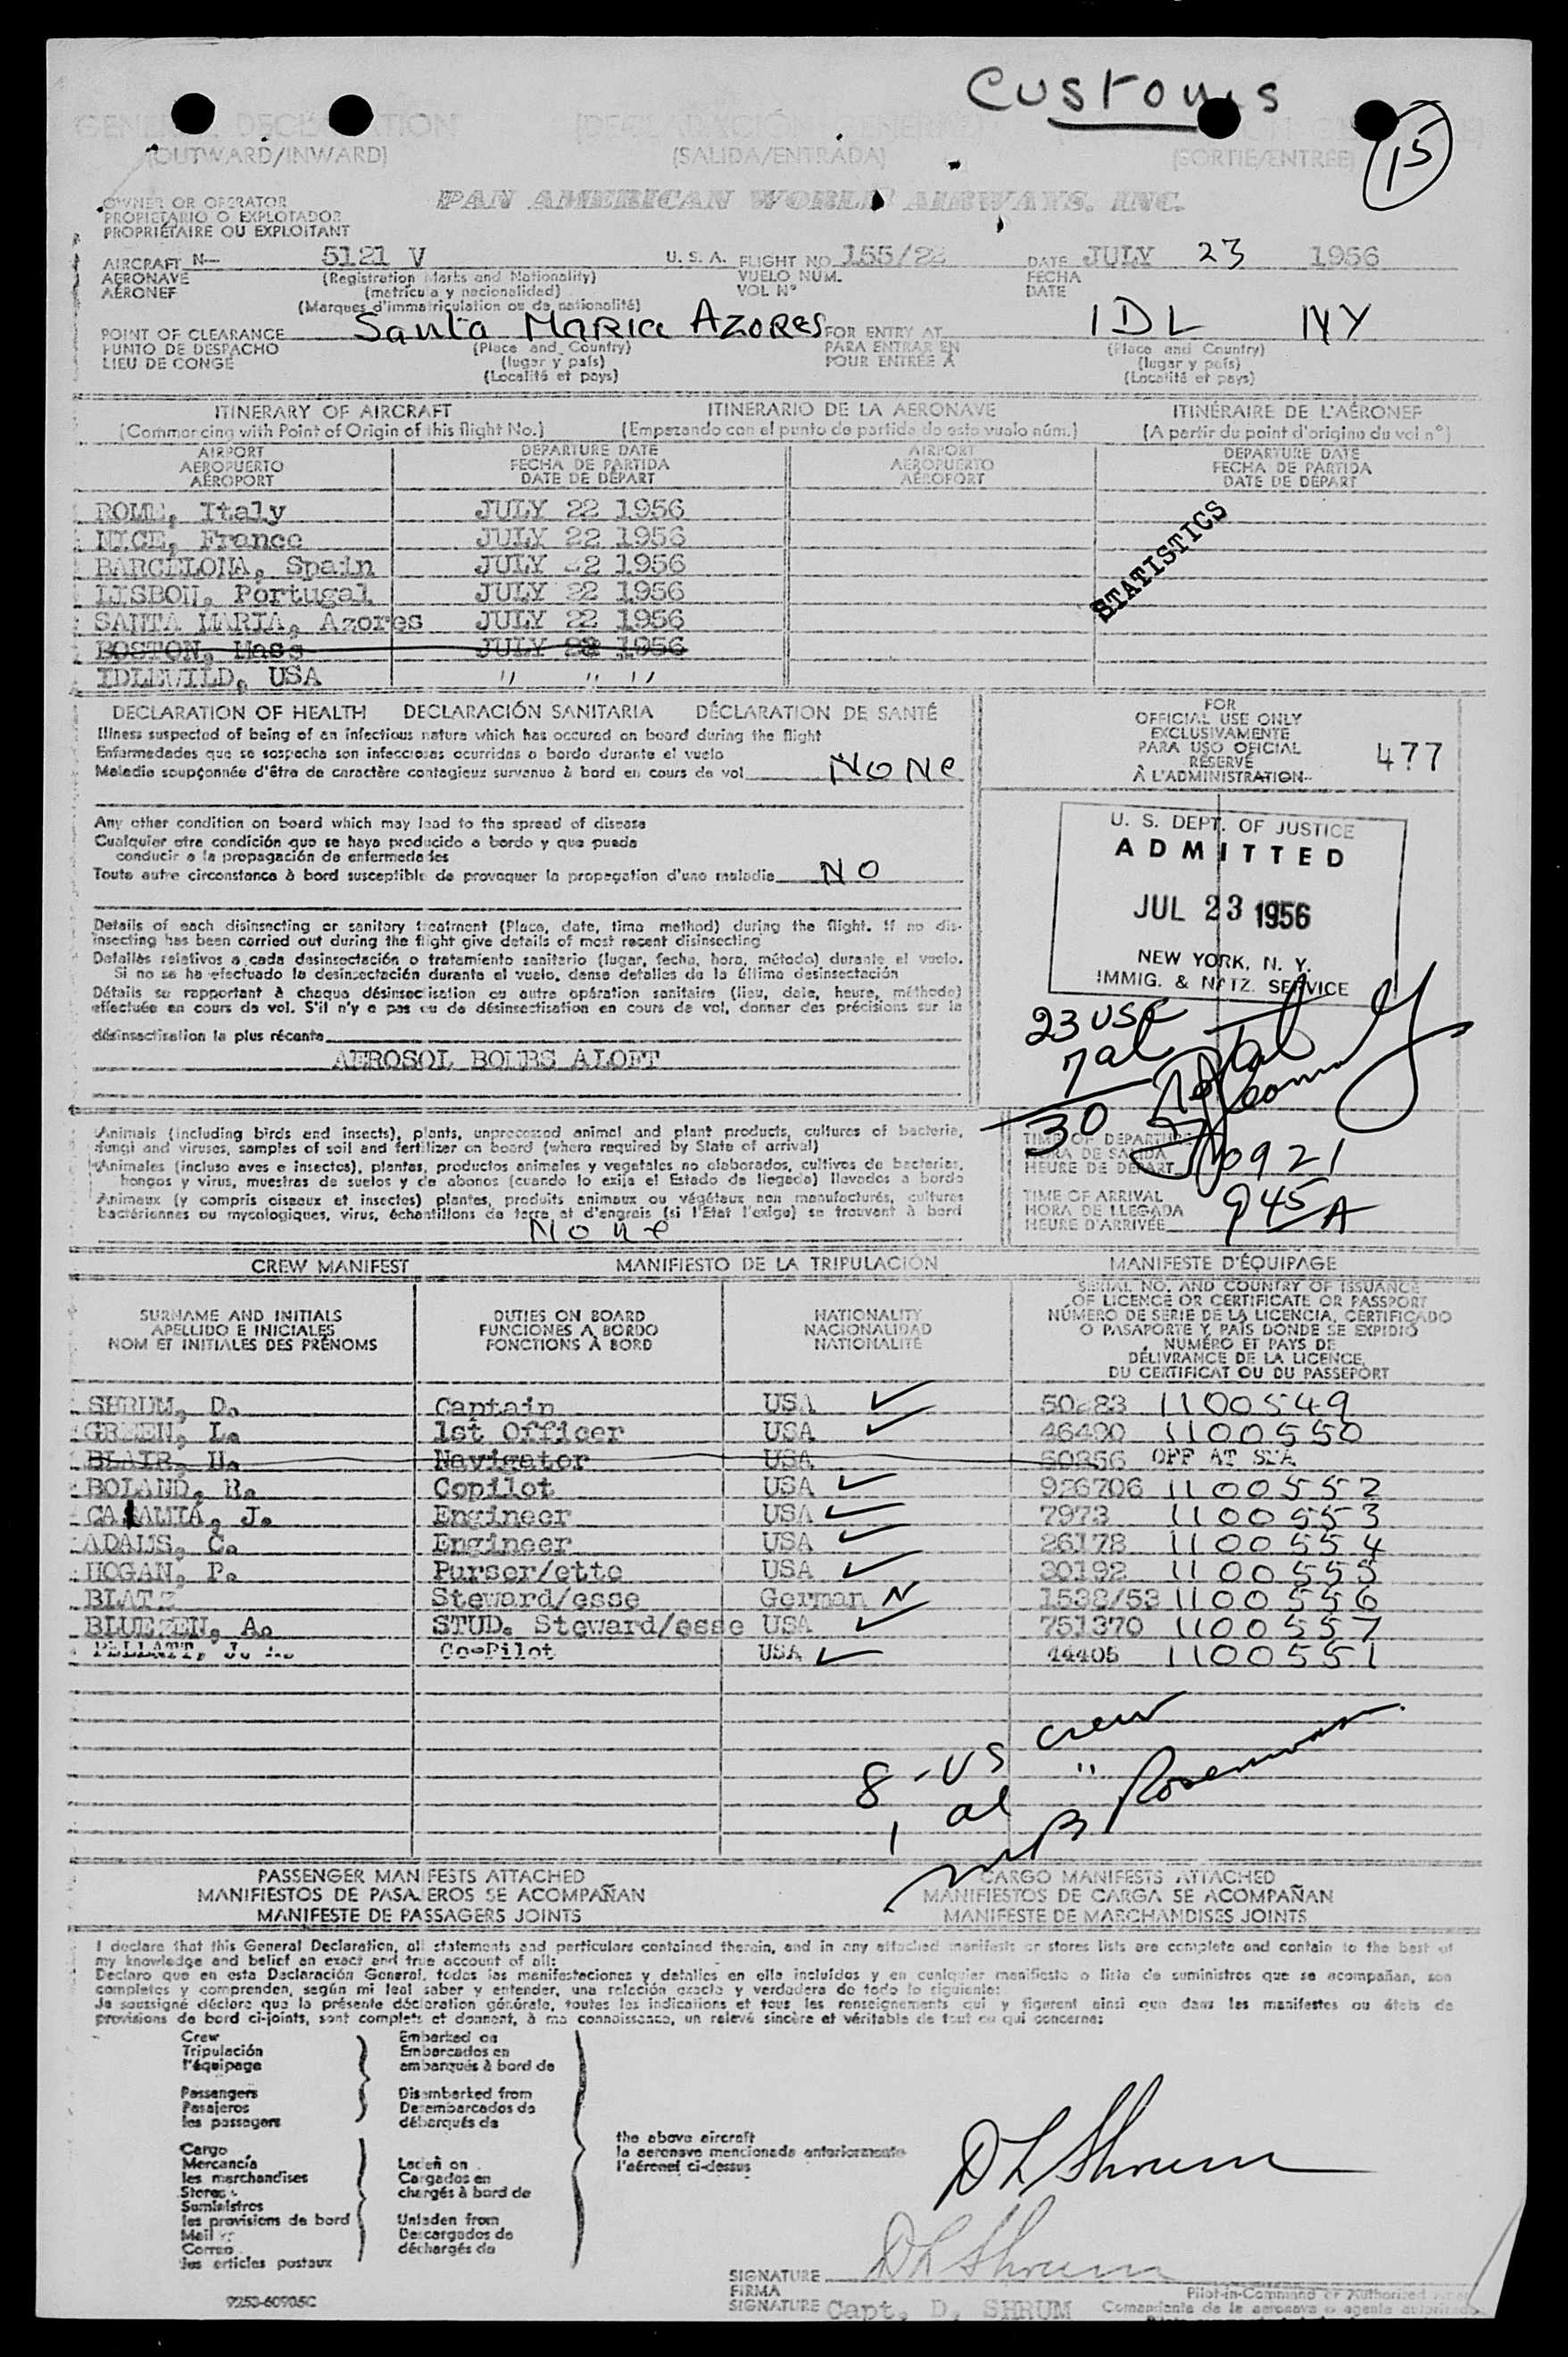 Customs
GENERAL DECLARATION
(OUTWARD/INWARD) (SALIDA/ENTRADA) (SORTIE/ENTREE)
15
PAN AMERICAN WORLD AIRWAYS, INC.
OWNER OR OPERATOR
PROPIETARIO O EXPLOTADOR
PROPRIÉTAIRE OU EXPLOITANT
AIRCRAFT N— 5121 V U. S. A. FLIGHT NO 155/22 DATE JULY 23 1956
AERONAVE (Registration Marks and Nationality) VUELO NÚM. FECHA
AÉRONEF (matrícula y nacionalidad) VOL N° DATE
(Marques d'immatriculation ou de nationalité)
POINT OF CLEARANCE Santa MaRia AzoRes FOR ENTRY AT IDL NY
PUNTO DE DESPACHO (Place and Country) PARA ENTRAR EN (Place and Country)
LIEU DE CONGÉ (lugar y país) POUR ENTRÉE À (lugar y país)
(Localité et pays) (Localité et pays)
ITINERARY OF AIRCRAFT ITINERARIO DE LA AERONAVE ITINÉRAIRE DE L'AÉRONEF
(Commencing with Point of Origin of this flight No.) (Empezando con el punto de partida de este vuelo núm.) (A partir du point d'origine du vol n°)
AIRPORT DEPARTURE DATE AIRPORT DEPARTURE DATE
AEROPUERTO FECHA DE PARTIDA AEROPUERTO FECHA DE PARTIDA
AÉROPORT DATE DE DÉPART AÉROPORT DATE DE DÉPART
ROME, Italy JULY 22 1956
NICE, France JULY 22 1956
BARCELONA, Spain JULY 22 1956
LISBON, Portugal JULY 22 1956
SANTA MARIA, Azores JULY 22 1956
BOSTON, Mass JULY 1956
IDLEWILD, USA " " "
STATISTICS
DECLARATION OF HEALTH DECLARACIÓN SANITARIA DÉCLARATION DE SANTÉ
Illness suspected of being of an infectious nature which has occured on board during the flight
Enfermedades que se sospecha son infecciosas ocurridas a bordo durante el vuelo
Maladie soupçonnée d'être de caractère contagieux survenue à bord en cours de vol NONe
Any other condition on board which may lead to the spread of disease
Cualquier otra condición que se haya producido a bordo y que pueda
conducir a la propagación de enfermedades
Toute autre circonstance à bord susceptible de provoquer la propagation d'une maladie NO
Details of each disinsecting or sanitary treatment (Place, date, time method) during the flight. If no dis-
insecting has been carried out during the flight give details of most recent disinsecting
Detalles relativos a cada desinsectación o tratamiento sanitario (lugar, fecha, hora, método) durante el vuelo.
Si no se ha efectuado la desinsectación durante el vuelo, dense detalles de la última desinsectación
Détails se rapportant à chaque désinsectisation ou autre opération sanitaire (lieu, date, heure, méthode)
effectuée en cours de vol. S'il n'y a pas eu de désinsectisation en cours de vol, donner des précisions sur la
désinsectisation la plus récente
AEROSOL BOMBS ALOFT
FOR
OFFICIAL USE ONLY
EXCLUSIVAMENTE
PARA USO OFICIAL
RÉSERVÉ
À L'ADMINISTRATION
477
U. S. DEPT. OF JUSTICE
ADMITTED
JUL 23 1956
NEW YORK, N. Y.
IMMIG. & NATZ. SERVICE
23 USC
7 al
30
Animals (including birds and insects), plants, unprocessed animal and plant products, cultures of bacteria,
fungi and viruses, samples of soil and fertilizer on board (where required by State of arrival)
Animales (incluso aves e insectos), plantas, productos animales y vegetales no elaborados, cultivos de bacterias,
hongos y virus, muestras de suelos y de abonos (cuando lo exija el Estado de llegada) llevados a bordo
Animaux (y compris oiseaux et insectes) plantes, produits animaux ou végétaux non manufacturés, cultures
bactériennes ou mycologiques, virus, échantillons de terre et d'engrais (si l'Etat l'exige) se trouvant à bord
None
TIME OF DEPARTURE
HORA DE SALIDA
HEURE DE DÉPART 0921
TIME OF ARRIVAL
HORA DE LLEGADA
HEURE D'ARRIVÉE 945 A
CREW MANIFEST MANIFIESTO DE LA TRIPULACIÓN MANIFESTE D'ÉQUIPAGE
SURNAME AND INITIALS DUTIES ON BOARD NATIONALITY SERIAL NO. AND COUNTRY OF ISSUANCE
APELLIDO E INICIALES FUNCIONES A BORDO NACIONALIDAD OF LICENCE OR CERTIFICATE OR PASSPORT
NOM ET INITIALES DES PRÉNOMS FONCTIONS À BORD NATIONALITÉ NÚMERO DE SERIE DE LA LICENCIA, CERTIFICADO
O PASAPORTE Y PAÍS DONDE SE EXPIDIÓ
NUMÉRO ET PAYS DE
DÉLIVRANCE DE LA LICENCE,
DU CERTIFICAT OU DU PASSEPORT
SHRUM, D. Captain USA 1100549
GREEN, L. 1st Officer USA 46490 1100550
BLAIR, H. Navigator USA 50856 OFF AT SMA
BOLAND, R. Copilot USA 926706 1100552
CALAMIA, J. Engineer USA 7973 1100553
ADAMS, C. Engineer USA 26178 1100554
HOGAN, P. Purser/ette USA 30192 1100555
BLATZ Steward/esse German N 1538/53 1100556
A. STUD. Steward/esse USA 751370 1100557
Co-Pilot USA 44405 1100551
8 - US crew
1 al "
PASSENGER MANIFESTS ATTACHED CARGO MANIFESTS ATTACHED
MANIFIESTOS DE PASAJEROS SE ACOMPAÑAN MANIFIESTOS DE CARGA SE ACOMPAÑAN
MANIFESTE DE PASSAGERS JOINTS MANIFESTE DE MARCHANDISES JOINTS
I declare that this General Declaration, all statements and particulars contained therein, and in any attached manifests or stores lists are complete and contain to the best of
my knowledge and belief an exact and true account of all:
Declaro que en esta Declaración General, todas las manifestaciones y detalles en ella incluídos y en cualquier manifiesto o lista de suministros que se acompañan, son
completos y comprenden, según mi leal saber y entender, una relación exacta y verdadera de todo lo siguiente:
Je soussigné déclare que la présente déclaration générale, toutes les indications et tous les renseignements qui y figurent ainsi que dans les manifestes ou états de
provisions de bord ci-joints, sont complets et donnent, à ma connaissance, un relevé sincère et véritable de tout ce qui concerne:
Crew Embarked on
Tripulación Embarcados en
l'équipage embarqués à bord de
Passengers Disembarked from
Pasajeros Desembarcados de
les passagers débarqués de
the above aircraft
la aeronave mencionada anteriormente
l'aéronef ci-dessus
Cargo
Mercancía Laden on
les marchandises Cargados en
Stores chargés à bord de
Suministros
les provisions de bord Unladen from
Mail Descargados de
Correo déchargés de
les articles postaux
D L Shrum
D L Shrum
SIGNATURE
FIRMA Pilot-in-Command or Authorized
SIGNATURE Capt. D. SHRUM Comandante de la aeronave o agente
9253-60905C